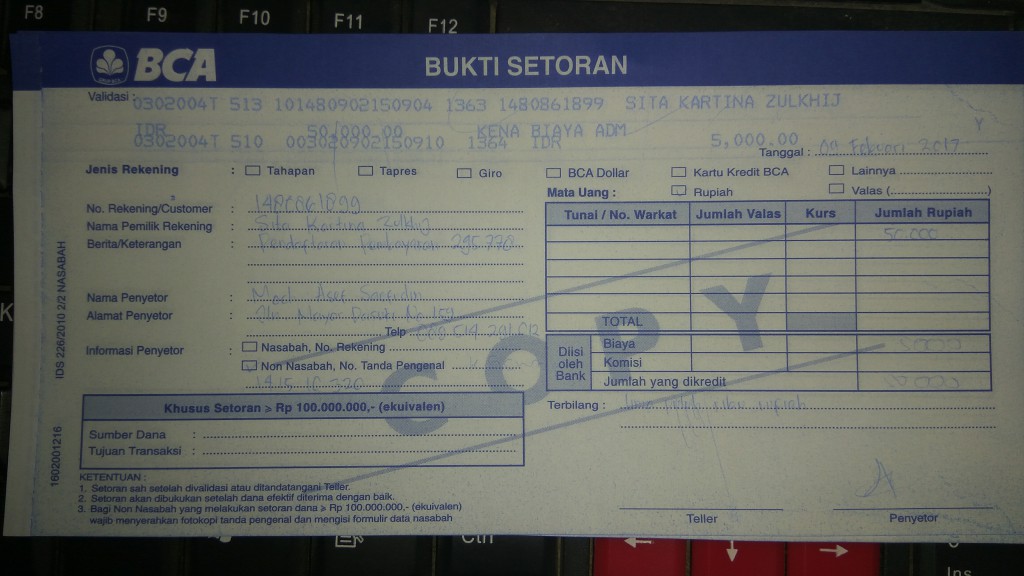 F8 F9 F10 F11 F12
BCA BUKTI SETORAN
Validasi : 0302004T 513 101480902150904 1363 1480861899 SITA KARTINA ZULKHIJ
IDR 50,000.00 KENA BIAYA ADM Y
0302004T 510 003020902150910 1364 IDR 5,000.00
Tanggal : 09 Februari 2017
Jenis Rekening : Tahapan Tapres Giro BCA Dollar Kartu Kredit BCA Lainnya
Mata Uang : Rupiah Valas ( )
No. Rekening/Customer : 1480861899
Nama Pemilik Rekening : Sita Kartina Zulkhij
Berita/Keterangan : Pendaftaran Pembayaran
Tunai / No. Warkat Jumlah Valas Kurs Jumlah Rupiah
50.000
Nama Penyetor : Asep
Alamat Penyetor : Jln Mayor
Telp
TOTAL
Informasi Penyetor : Nasabah, No. Rekening
Non Nasabah, No. Tanda Pengenal
Diisi oleh Bank
Biaya 5000
Komisi
Jumlah yang dikredit
Terbilang : lima puluh ribu rupiah
COPY
Khusus Setoran > Rp 100.000.000,- (ekuivalen)
Sumber Dana :
Tujuan Transaksi :
KETENTUAN :
1. Setoran sah setelah divalidasi atau ditandatangani Teller.
2. Setoran akan dibukukan setelah dana efektif diterima dengan baik.
3. Bagi Non Nasabah yang melakukan setoran dana > Rp 100.000.000,- (ekuivalen)
wajib menyerahkan fotokopi tanda pengenal dan mengisi formulir data nasabah
Teller Penyetor
IDS 226/2010 2/2 NASABAH
1602001216
K
Ctrl
Ins